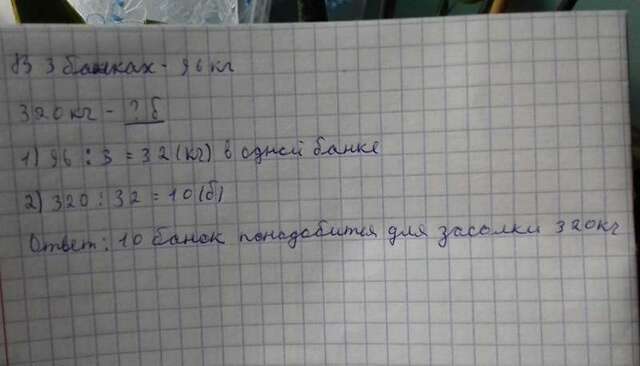 В 3 банках - 96 кг
320 кг - ? б
1) 96 : 3 = 32 (кг) в одной банке
2) 320 : 32 = 10 (б)
Ответ: 10 банок понадобится для засолки 320 кг